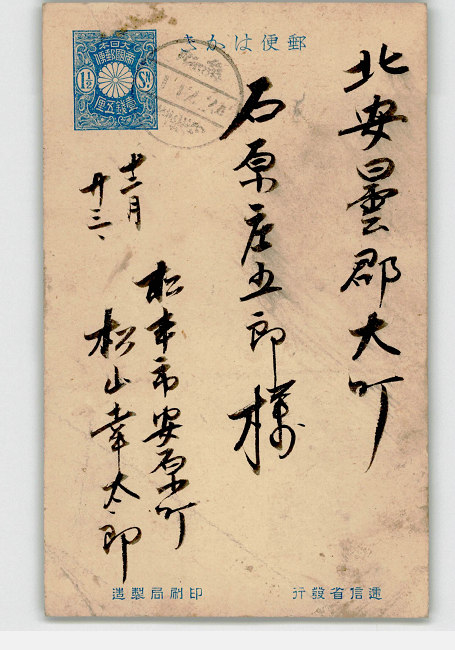 郵便はかき
大日本
帝國郵便
1½
Sn
壹錢五厘
北安曇郡大町
石原庄五郎様
十二月
廿三、
松本市安原町
松山幸太郎
逓信省發行
印刷局製造